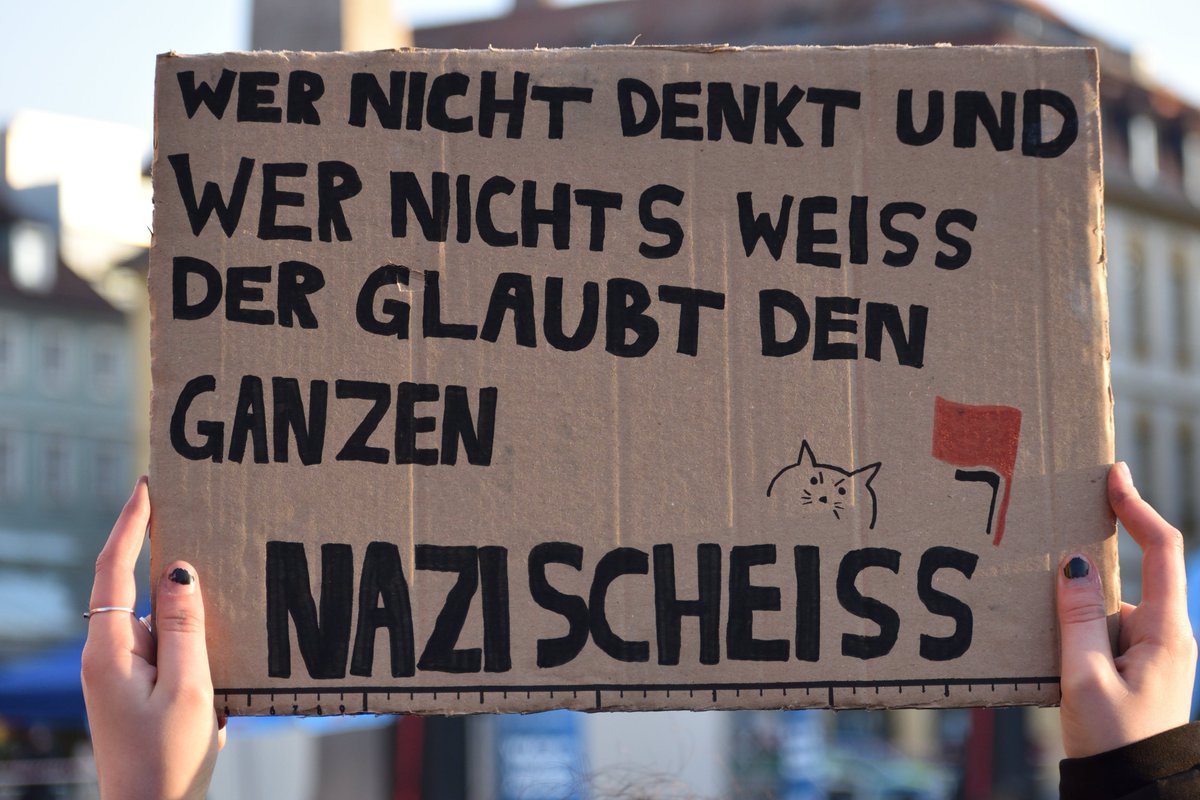 WER NICHT DENKT UND
WER NICHTS WEISS
DER GLAUBT DEN
GANZEN
NAZISCHEISS